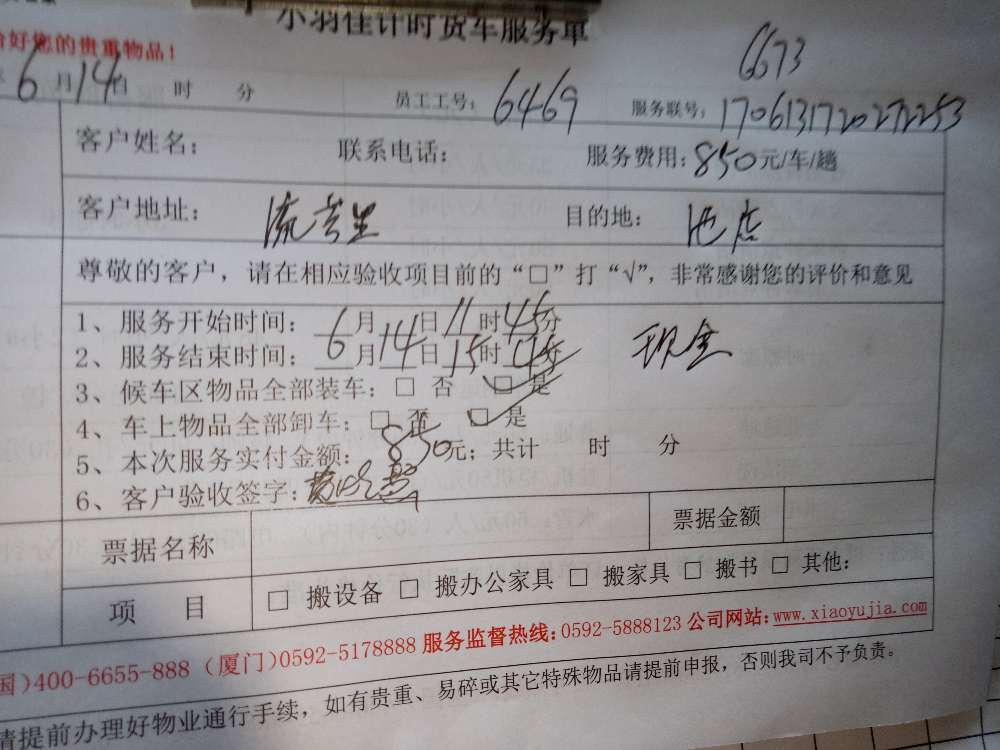 小羽佳计时货车服务单
好您的贵重物品！
6673
6月14日 时 分 员工工号：6469 服务联号：1706131720272253
客户姓名： 联系电话： 服务费用：850元/车/趟
客户地址： 目的地：
尊敬的客户，请在相应验收项目前的“□”打“√”，非常感谢您的评价和意见
1、服务开始时间：6月14日11时45分
现金
2、服务结束时间：6月14日15时45分
3、候车区物品全部装车：□ 否 □ 是
4、车上物品全部卸车：□ 否 □ 是
5、本次服务实付金额：850元；共计 时 分
6、客户验收签字：
票据名称 票据金额
项 目 □ 搬设备 □ 搬办公家具 □ 搬家具 □ 搬书 □ 其他：
国）400-6655-888（厦门）0592-5178888 服务监督热线：0592-5888123 公司网站：www.xiaoyujia.com
请提前办理好物业通行手续，如有贵重、易碎或其它特殊物品请提前申报，否则我司不予负责。